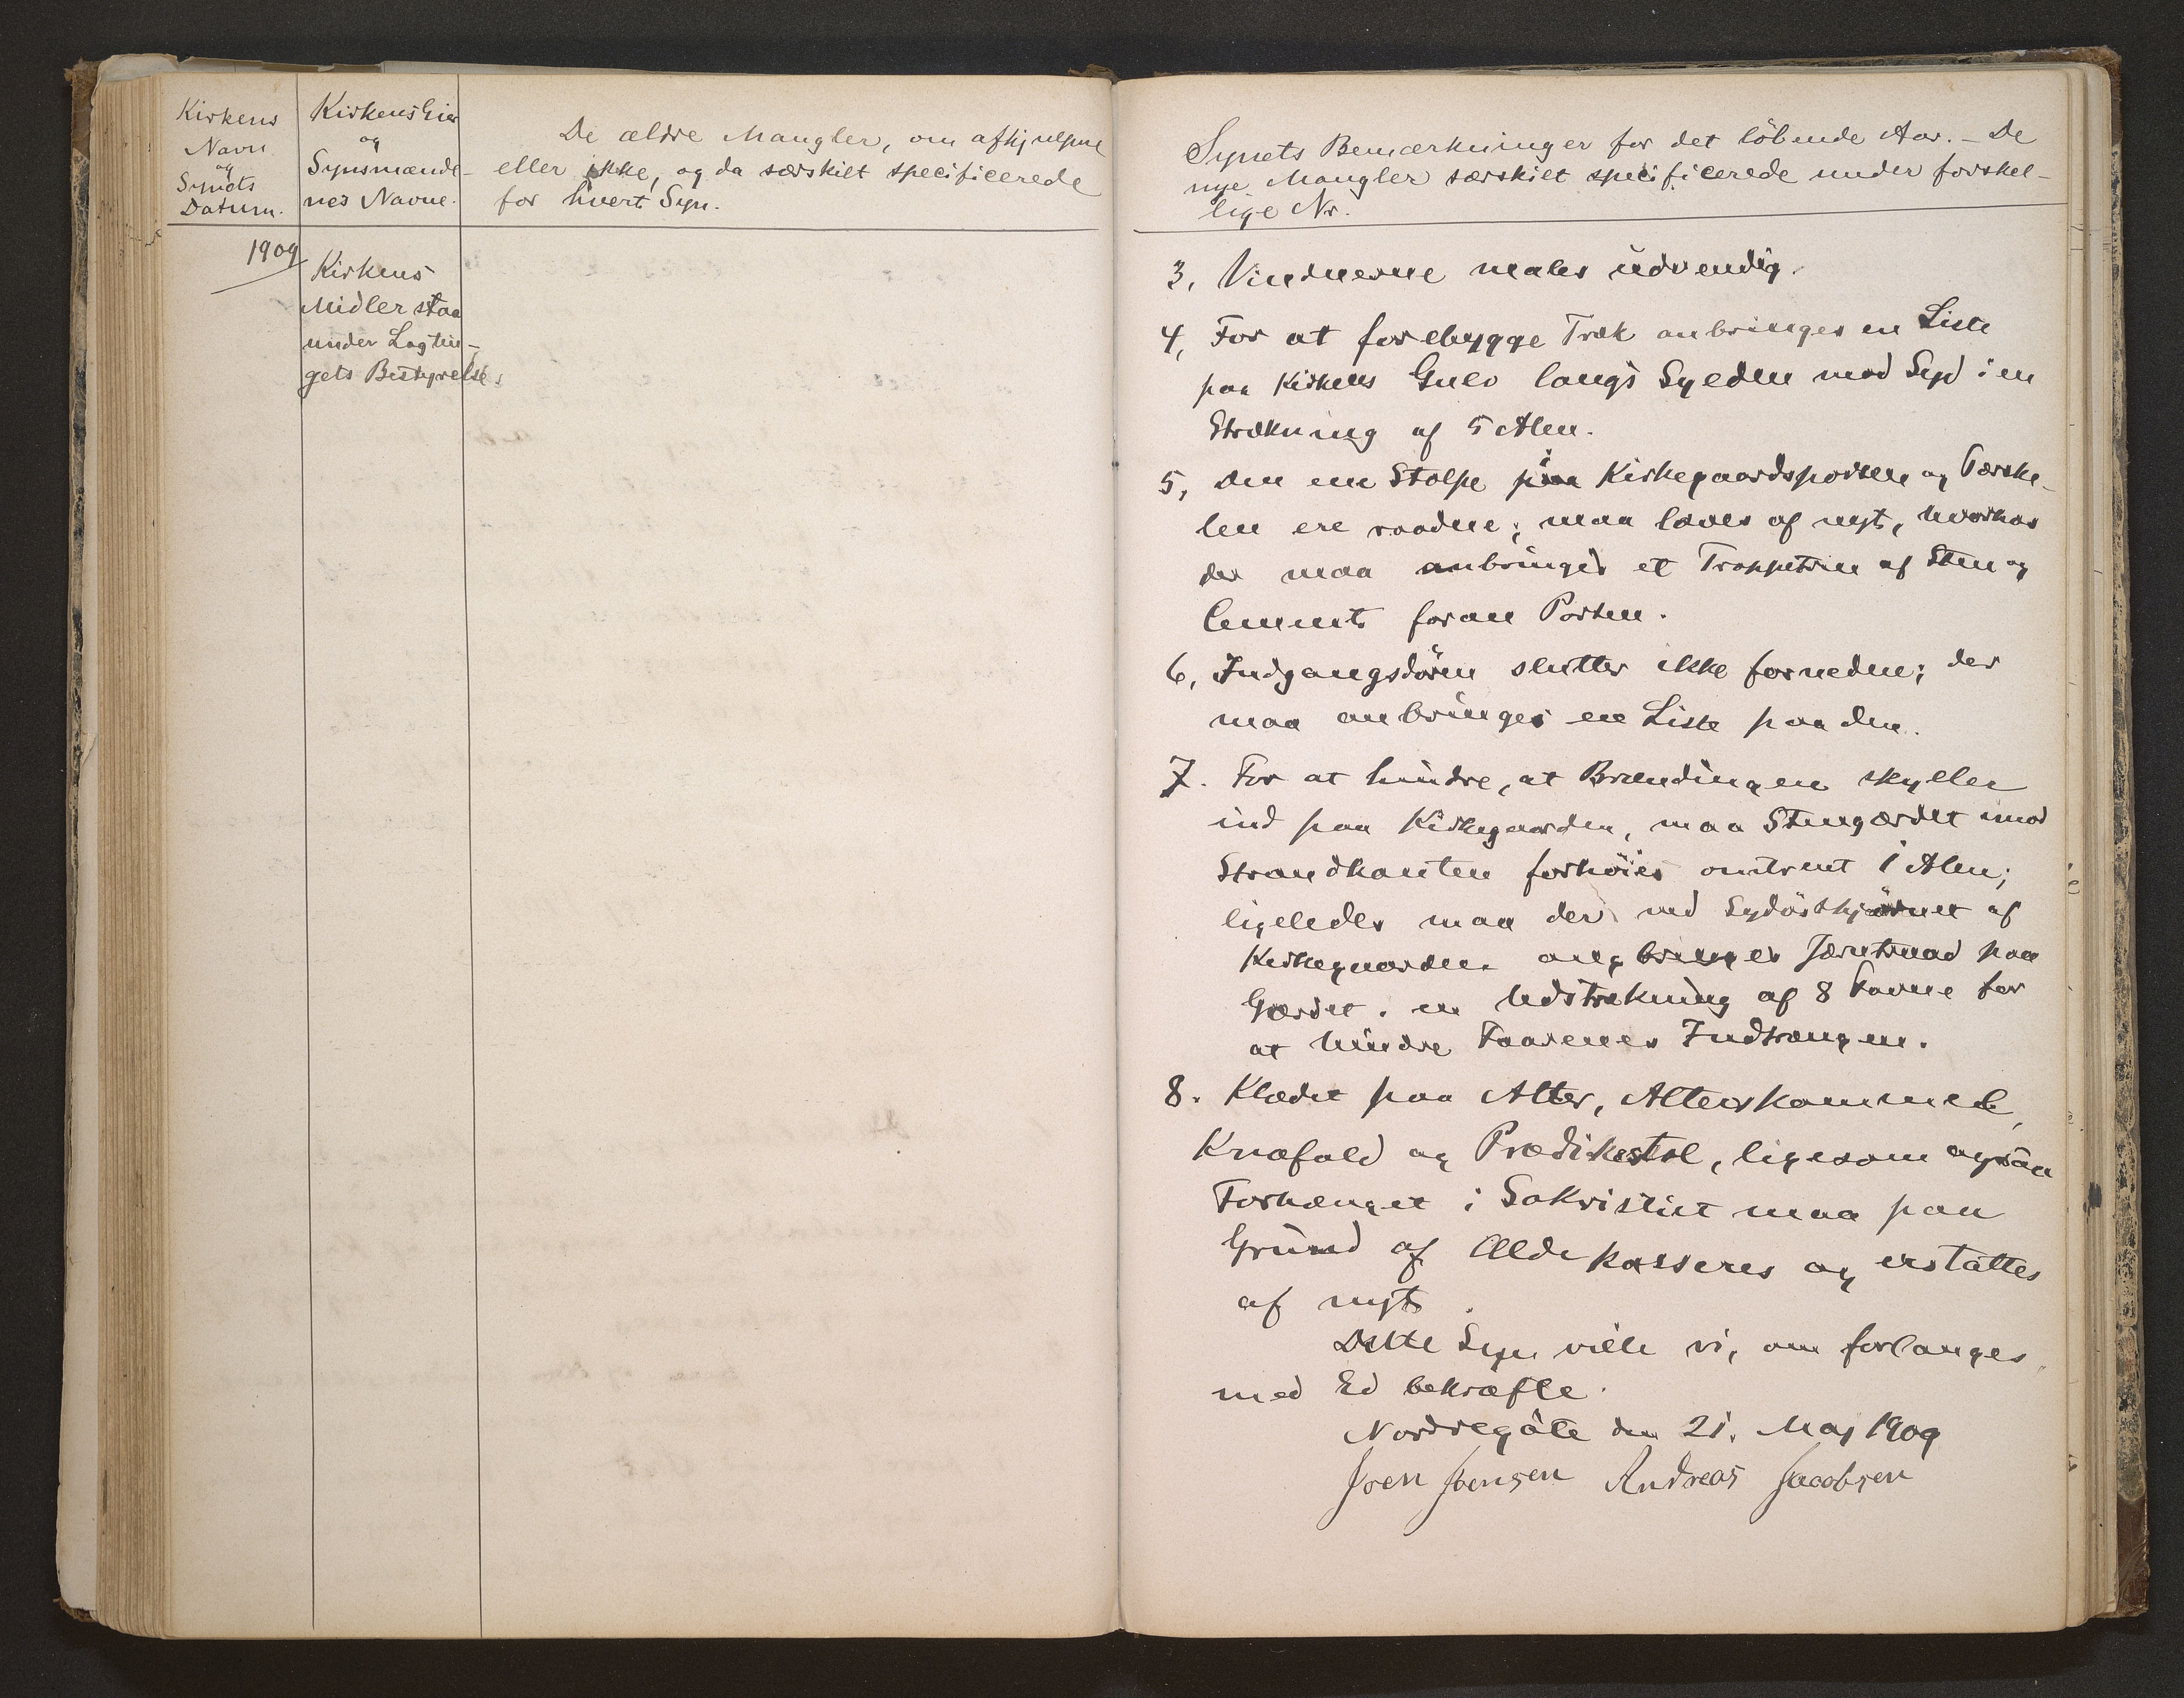 Kirkens
Navn
og
Synets
Datum.
Kirkens Eier
og
Synsmænde-
nes Navne.
De ældre Mangler, om afhjulpne
eller ikke, og da særskilt specificerede
for hvert Syn.
1909
Kirkens
Midler staa
under Lagtin-
gets Bestyrelse.
Synets Bemærkninger for det löbende Aar. - De
nye Mangler særskilt specificerede under forskel-
lige Nr.
3, Vinduerne males udvendig.
4, For at forebygge Træk anbringes en Liste
paa Kirkens Gulv langs Syeden mod Syd i en
Strækning af 5 Alen.
5, Den ene Stolpe i Kirkegaardsporten og Tærske-
len ere raadne; maa laves af nyt, hvorhos
der maa anbringes et Trappetrin af Sten og
Cement foran Porten.
6, Indgangsdören slutter ikke forneden; der
maa anbringes en Liste paa den.
7. For at hindre, at Brændingen skyller
ind paa Kirkegaarden, maa Stengærdet imod
Strandkanten forhöies omtrent 1 Alen;
ligeledes maa der ved Sydösthjörnet af
Kirkegaarden anbringes Jærntraad paa
Gærdet i en Udstrækning af 8 Favne for
at hindre Faarenes Indtrængen.
8. Klædet paa Alter, Alterskammel,
Knæfald og Prædikestol, ligesom ogsaa
Forhænget i Sakristiet maa paa
Grund af Ælde kasseres og erstattes
af nyt.
Dette Syn ville vi, om forlanges,
med Ed bekræfte.
Nordregöte den 21. Maj 1909
Joen Joensen Andreas Jacobsen